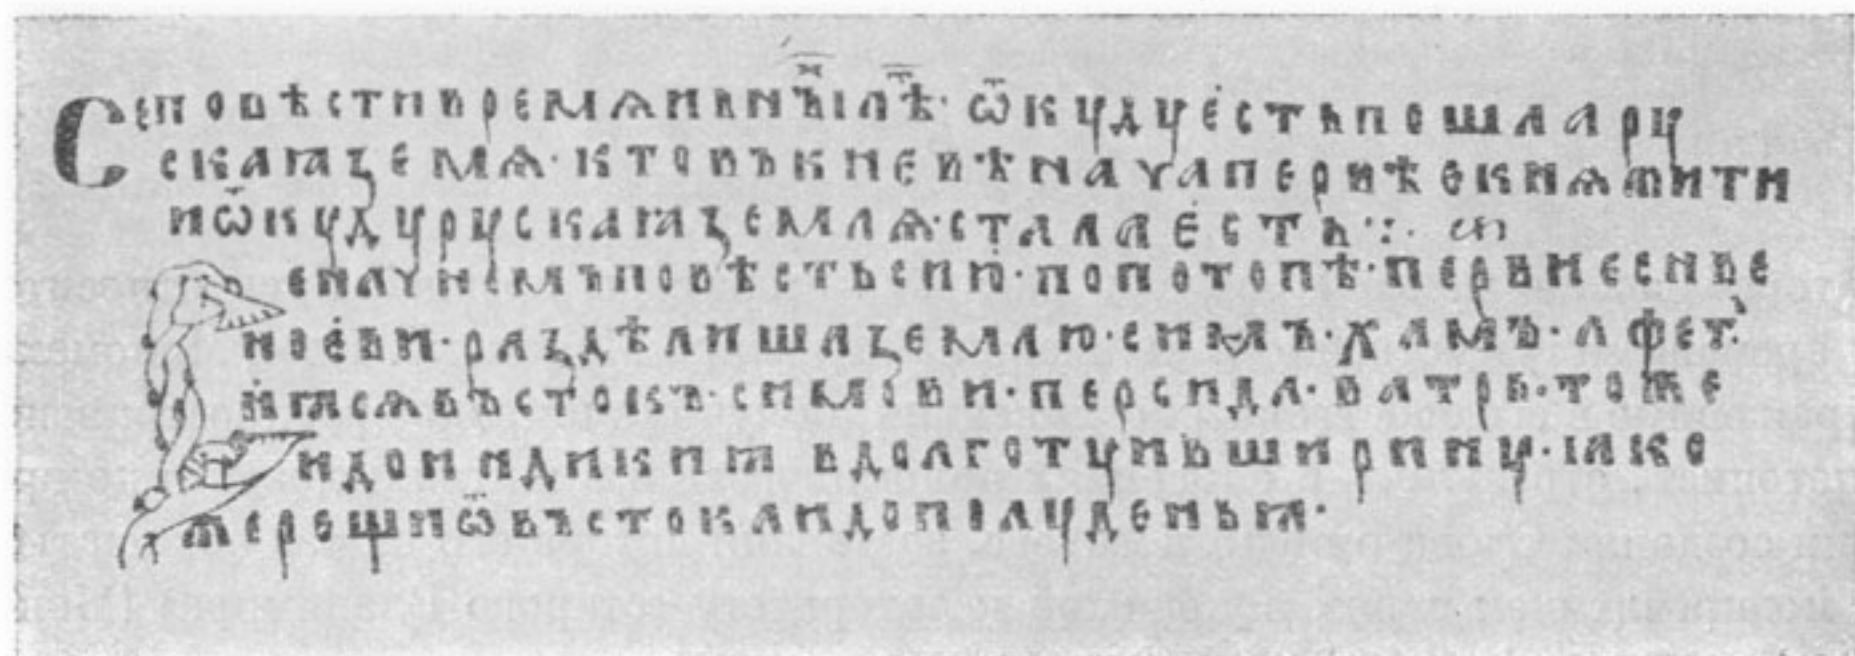 Сеповѣстивремѧньнъıⷯлѣⷮ· ѿкудуєстьпошлаару
скаꙗꙁемѧ· ктовъкиевѣначапервѣекнѧжити
иѿкудурускаꙗꙁемлѧ·сталаєсть·:·
еначнемъповѣстьсию· попотопѣ· первиеснве
ноєви· раꙁдѣлишаꙁемлю·симъ· хамъ· афет҃·
ꙗсѧвъстокъ· симови· персида· ватрь· тоже
идоиндикиꙗ вдолготуивъширину· ꙗко
жерещиѿвъстокаидополуденьꙗ·